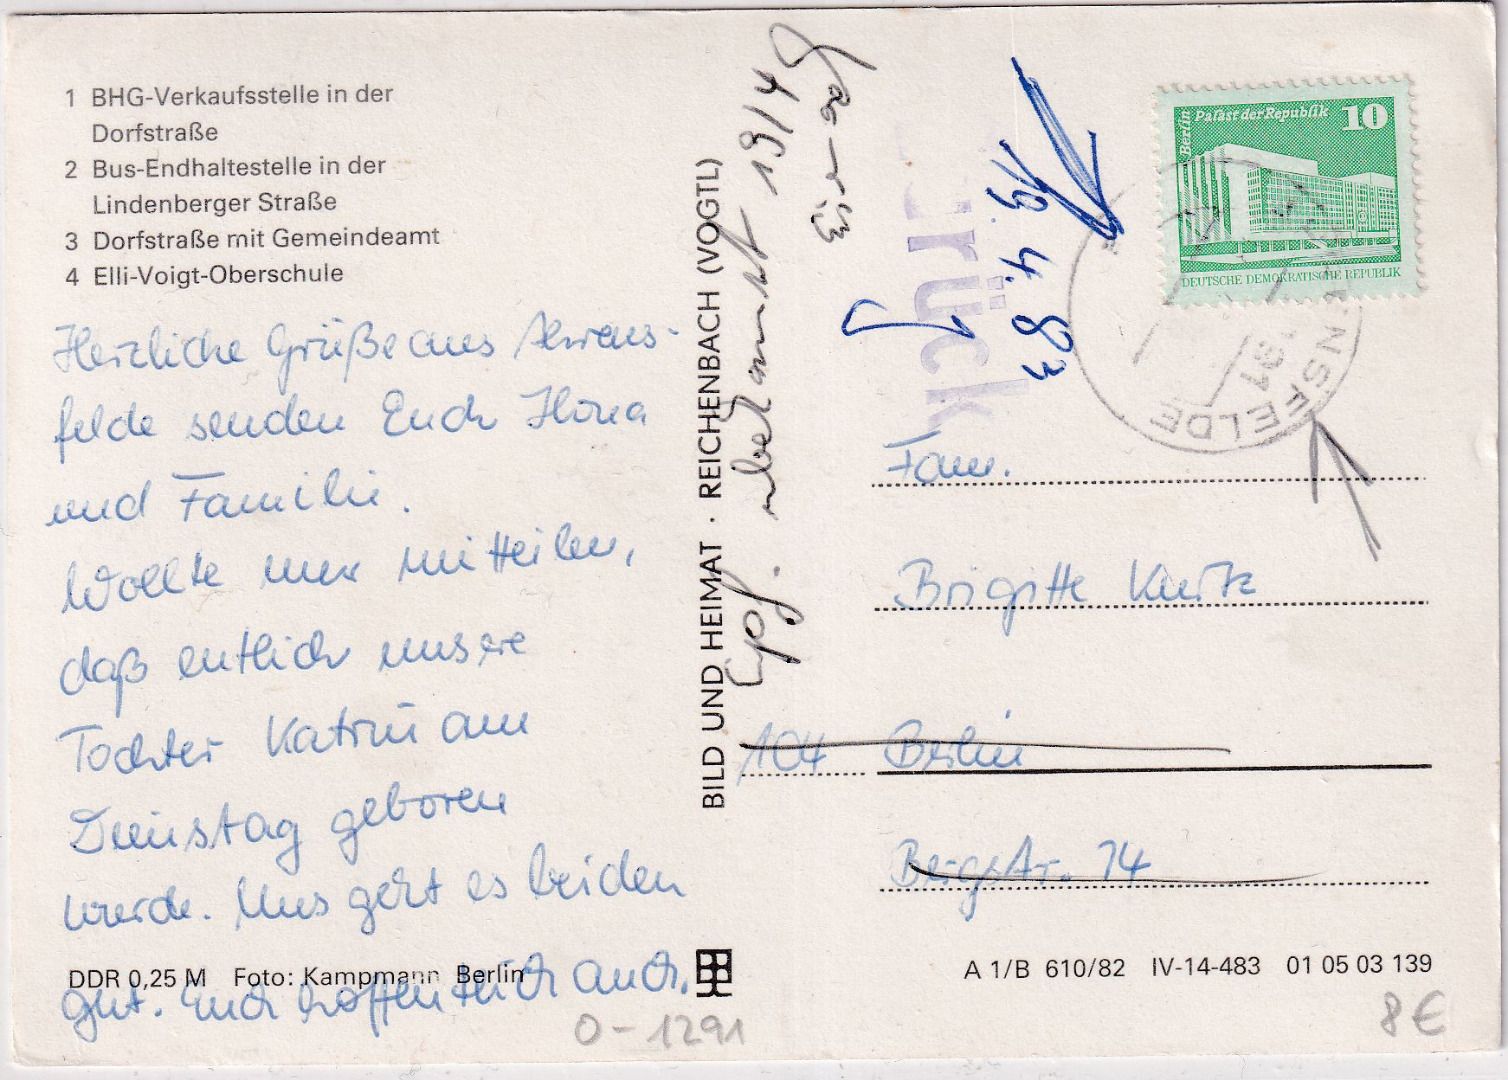 1 BHG-Verkaufsstelle in der
Dorfstraße
2 Bus-Endhaltestelle in der
Lindenberger Straße
3 Dorfstraße mit Gemeindeamt
4 Elli-Voigt-Oberschule
Herzliche Grüße aus Ahrens-
felde senden Euch Ilona
und Familie.
Wollte nur mitteilen,
daß entlich unsere
Tochter Katrin am
Dienstag geboren
wurde. Uns geht es beiden
gut. Euch hoffentlich auch.
DDR 0,25 M Foto: Kampmann Berlin
0-1291
BILD UND HEIMAT · REICHENBACH (VOGTL)
unbekannt 19/4
rück
19. 4. 83
Berlin Palast der Republik 10
DEUTSCHE DEMOKRATISCHE REPUBLIK
ENSFELDE
1291
Fam.
Brigitte Kurtz
104 Berlin
Bergstr. 74
A 1/B 610/82 IV-14-483 01 05 03 139
8 €